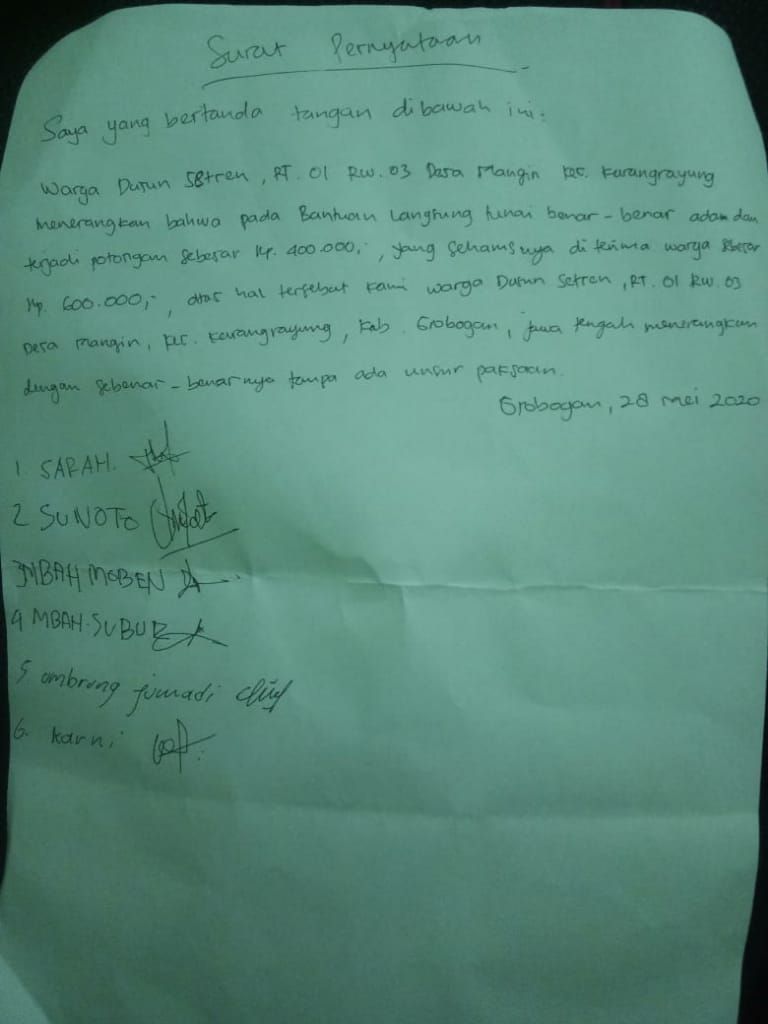 Surat Pernyataan
Saya yang bertanda tangan dibawah ini:
Warga Dusun Setren, RT. 01 RW. 03 Desa Mangin Kec. Karangrayung
menerangkan bahwa pada Bantuan Langsung tunai benar-benar adam dan
terjadi potongan sebesar Rp. 400.000,-, yang seharusnya di terima warga sebesar
Rp. 600.000,-, atas hal tersebut kami warga Dusun Setren, RT. 01 RW. 03
Desa Mangin, Kec. Karangrayung, Kab. Grobogan, jawa tengah menerangkan
dengan sebenar-benarnya tanpa ada unsur paksaan.
Grobogan, 28 mei 2020
1 SARAH.
2 SUNOTO
3 MBAH MOBEN
4 MBAH. SUBUR
5. ombrong jumadi
6. karni